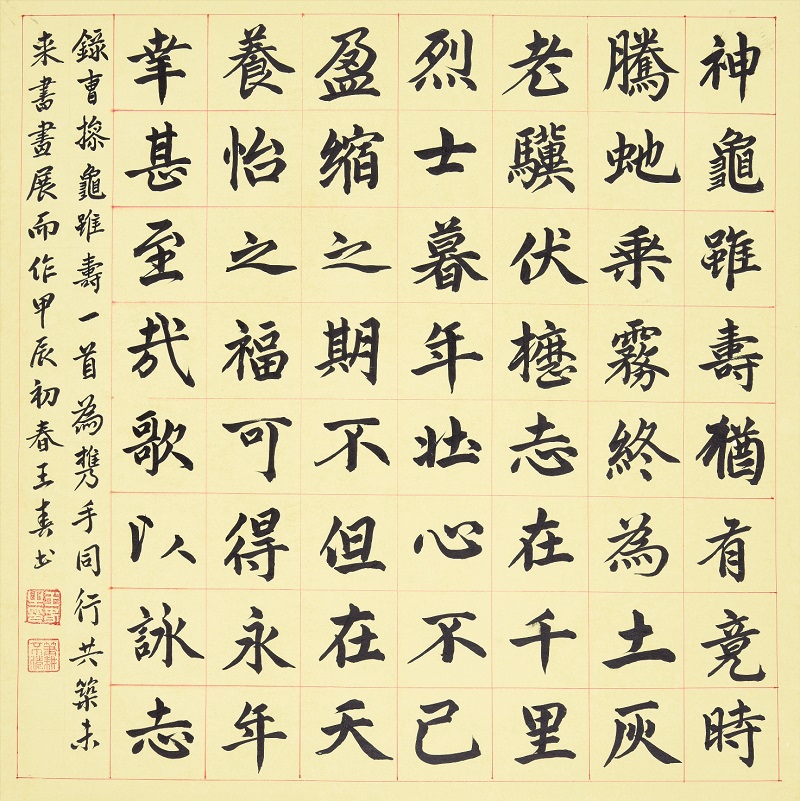 神龜雖壽猶有竟時
騰虵乘霧終為土灰
老驥伏櫪志在千里
烈士暮年壯心不已
盈縮之期不但在天
養怡之福可得永年
幸甚至哉歌以詠志
錄曹操龜雖壽一首為携手同行共築未
来書畫展而作甲辰初春王春書